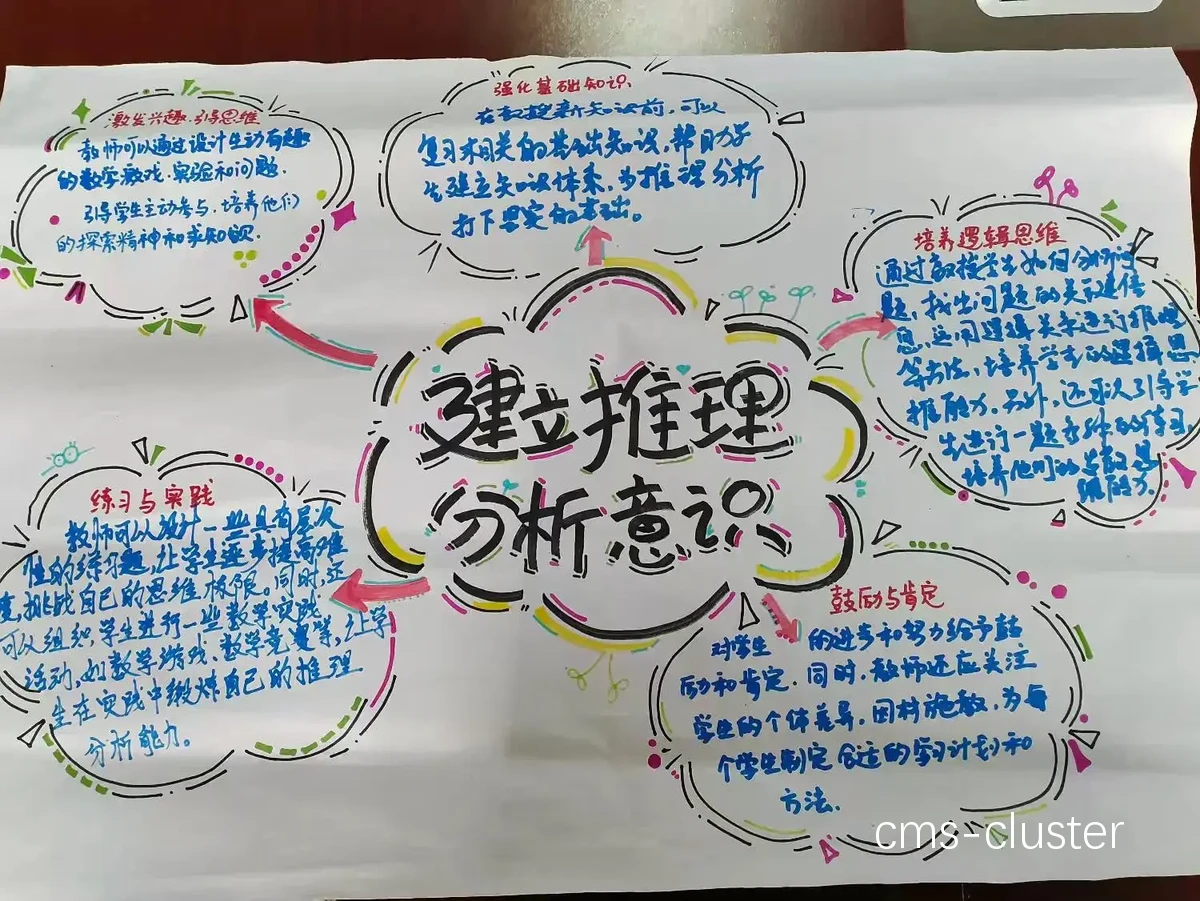 激发兴趣.引导思维
教师可以通过设计生动有趣
的数学游戏.实验和问题.
引导学生主动参与.培养他们
的探索精神和求知欲.
强化基础知识
在教授新知识前,可以
复习相关的基础知识,帮助学
生建立知识体系,为推理分析
打下坚实的基础。
培养逻辑思维
通过教授学生如何分析问
题,找出问题的关键信
息,运用逻辑关系进行推理
等方法,培养学生的逻辑思
维能力.另外,还可以引导学
生进行一题多种的练习,
培养他们的发散思
维能力.
建立推理
分析意识
练习与实践
教师可以设计一些具有层次
性的练习题,让学生逐步提高难
度,挑战自己的思维极限。同时,还
可以组织学生进行一些数学实践
活动,如数学游戏.数学竞赛等,让学
生在实践中锻炼自己的推理
分析能力。
鼓励与肯定
对学生的进步和努力给予鼓
励和肯定.同时,教师还应关注
学生的个体差异,因材施教,为每
个学生制定合适的学习计划和
方法.
cms-cluster